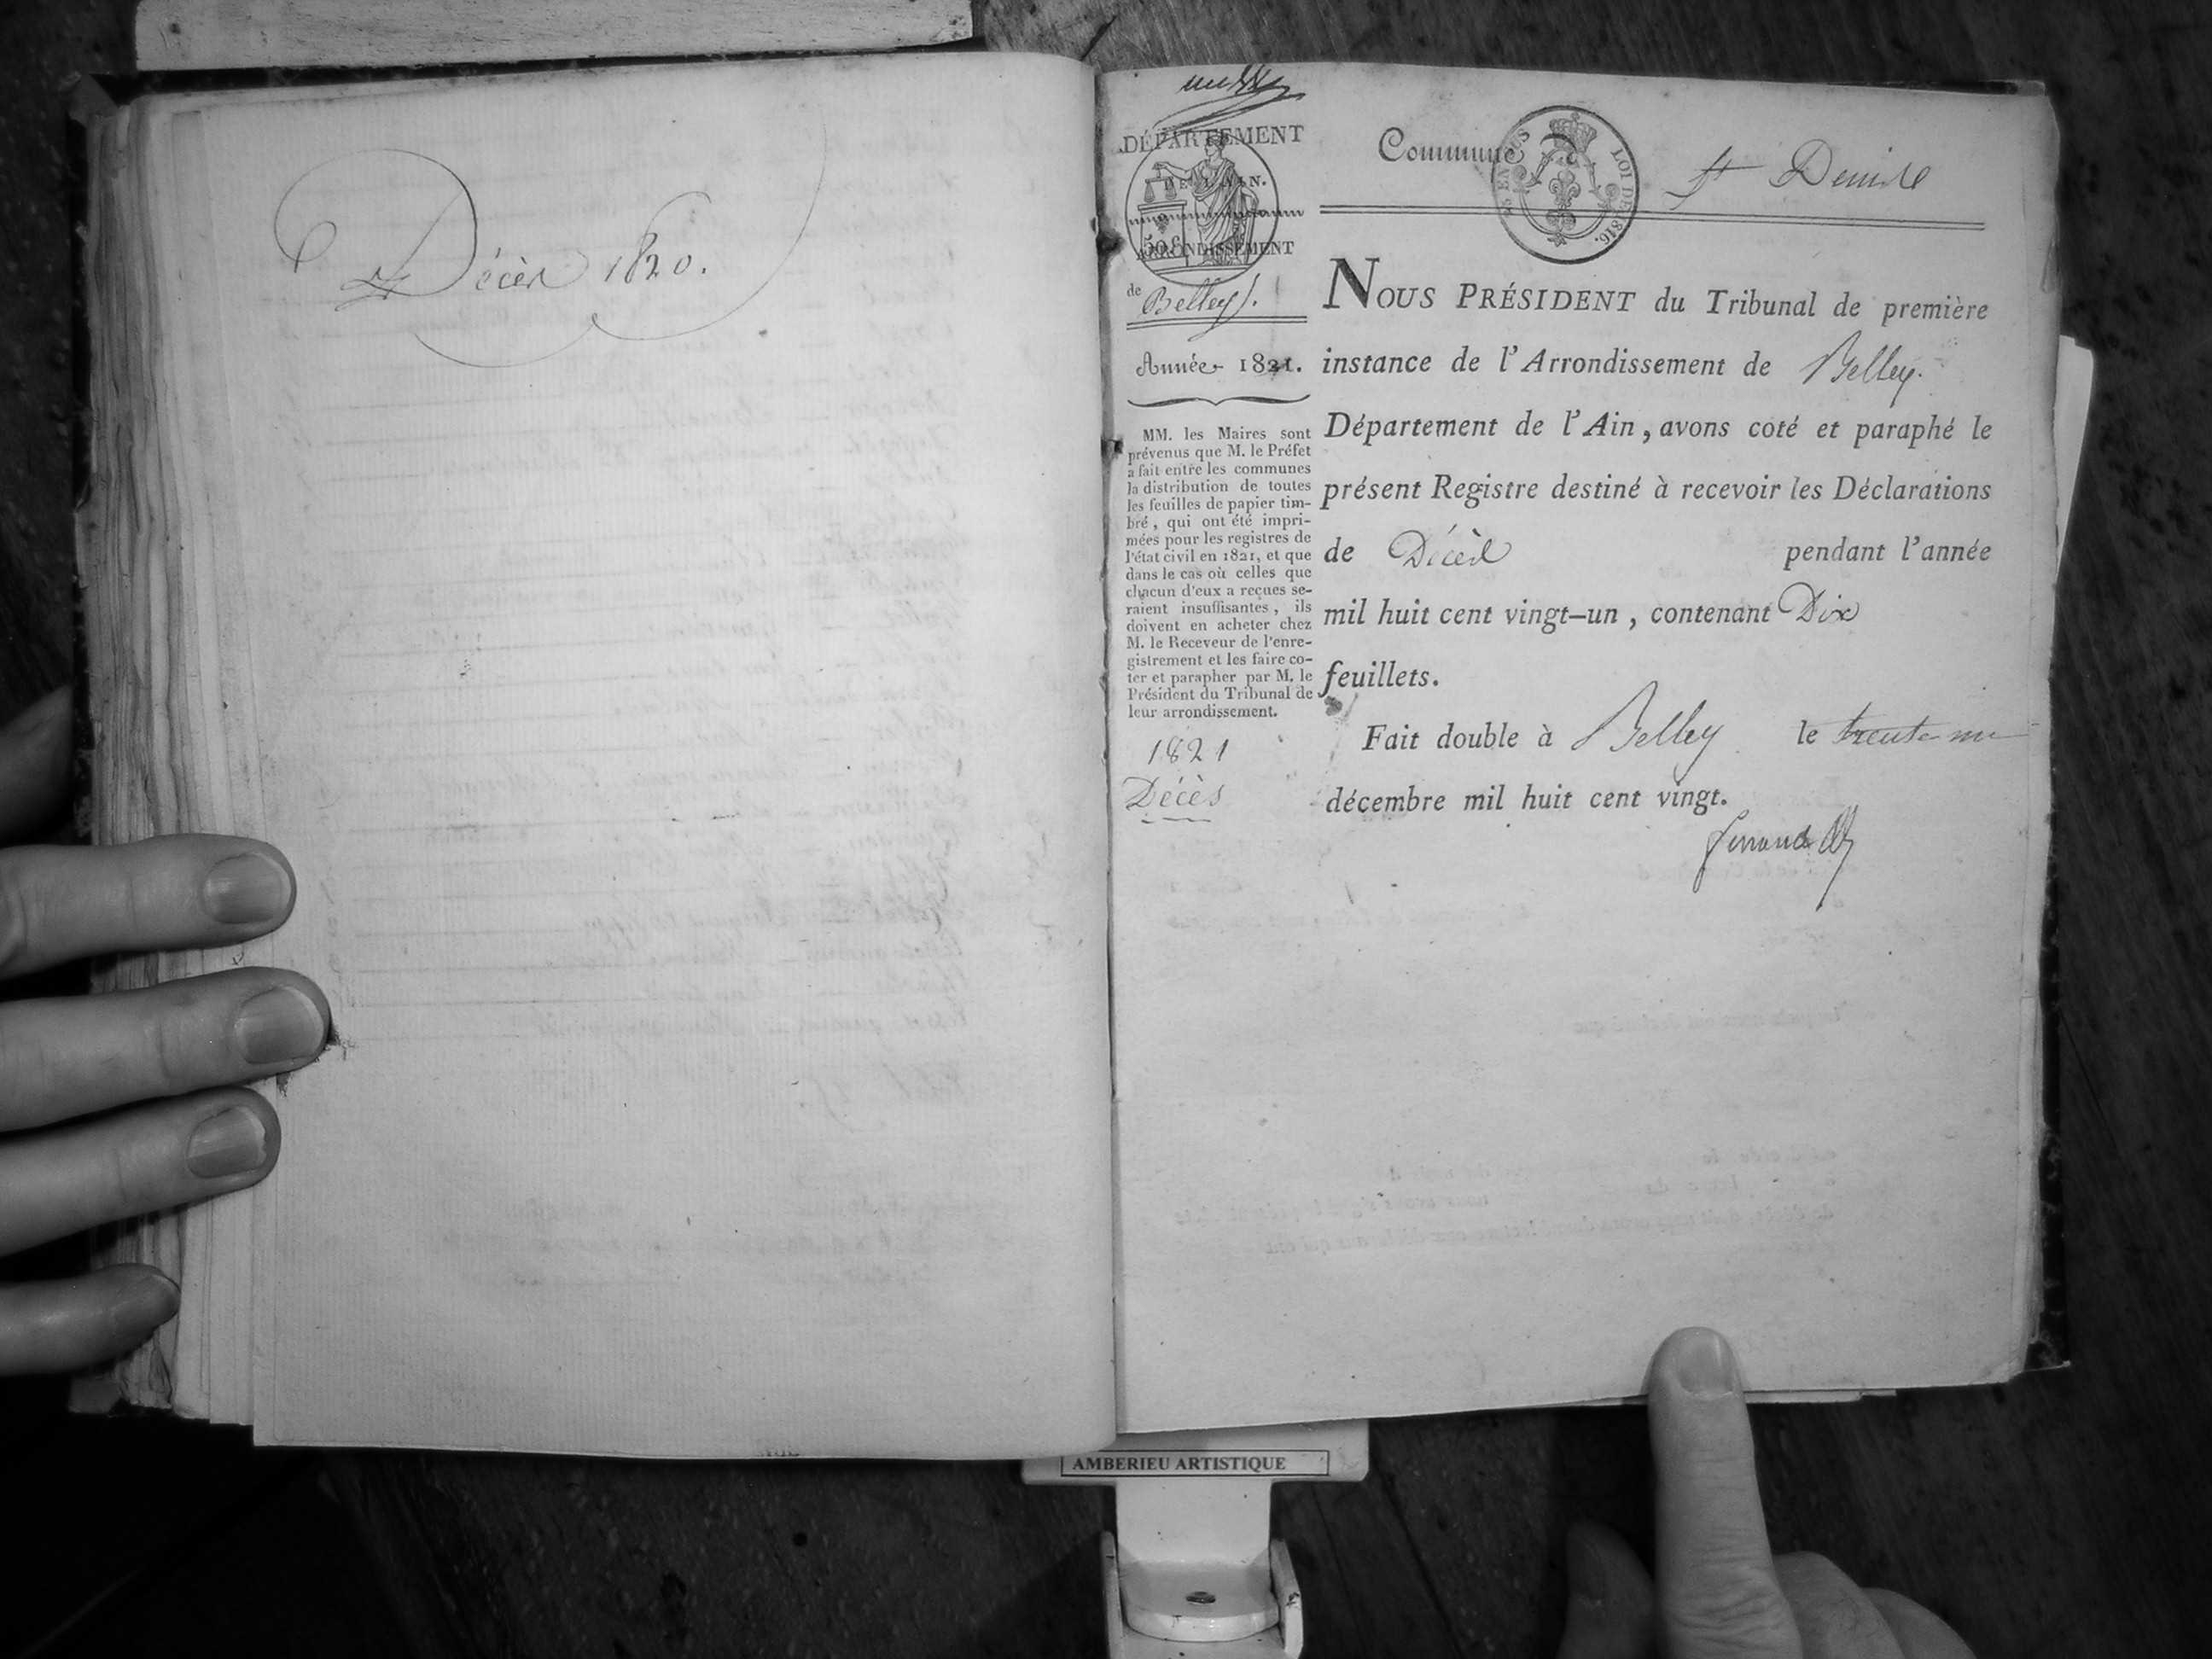 Décès 1820.
DÉPARTEMENT
DE L'AIN.
50 c
ARRONDISSEMENT
de Belley.
Année 1821.
MM. les Maires sont
prévenus que M. le Préfet
a fait entre les communes
la distribution de toutes
les feuilles de papier tim-
bré, qui ont été impri-
mées pour les registres de
l'état civil en 1821, et que
dans le cas où celles que
chacun d'eux a reçues se-
raient insuffisantes, ils
doivent en acheter chez
M. le Receveur de l'enre-
gistrement et les faire co-
ter et parapher par M. le
Président du Tribunal de
leur arrondissement.
1821
Décès
Commune St Denis
LOI DE 1816.
NOUS PRÉSIDENT du Tribunal de première
instance de l'Arrondissement de Belley.
Département de l'Ain, avons coté et paraphé le
présent Registre destiné à recevoir les Déclarations
de Décès pendant l'année
mil huit cent vingt-un, contenant Dix
feuillets.
Fait double à Belley le trente un
décembre mil huit cent vingt.
AMBERIEU ARTISTIQUE